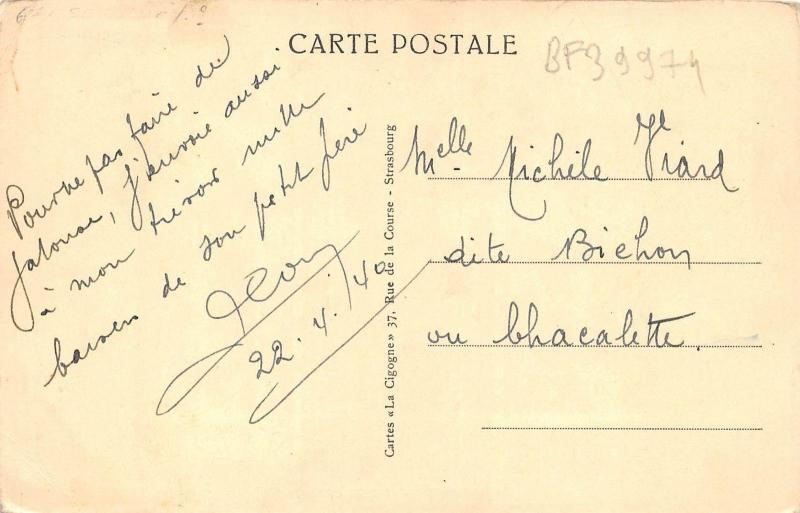 CARTE POSTALE
BF39974
Pour ne pas faire de
jalouse, j'envoie aussi
à mon trésor mille
baisers de son petit
22.4.40
Cartes «La Cigogne» 37, Rue de la Course - Strasbourg
Melle Michèle Viard
dite Bichon
ou Chacalette.